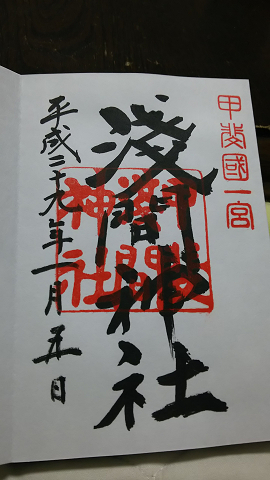 甲斐國一宮
淺間神社
平成二十九年一月五日
淺間神社